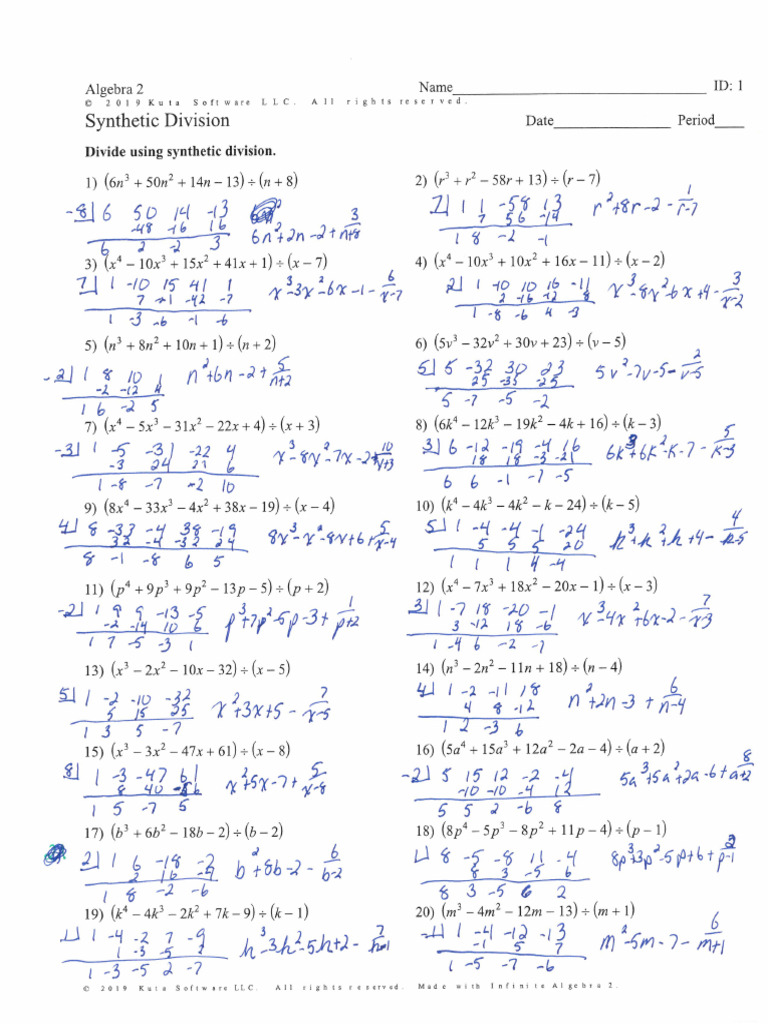 Algebra 2 Name ID: 1
© 2019 Kuta Software LLC. All rights reserved.
Synthetic Division Date Period
Divide using synthetic division.
1) (6n³ + 50n² + 14n − 13) ÷ (n + 8)
-8| 6 50 14 -13
-48 -16 16
6 2 -2 3
6n²+2n-2+3/(n+8)
2) (r³ + r² − 58r + 13) ÷ (r − 7)
7| 1 1 -58 13
7 56 -14
1 8 -2 -1
r²+8r-2-1/(r-7)
3) (x⁴ − 10x³ + 15x² + 41x + 1) ÷ (x − 7)
7| 1 -10 15 41 1
7 -21 -42 -7
1 -3 -6 -1 -6
x³-3x²-6x-1-6/(x-7)
4) (x⁴ − 10x³ + 10x² + 16x − 11) ÷ (x − 2)
2| 1 -10 10 16 -11
2 -16 -12 8
1 -8 -6 4 -3
x³-8x²-6x+4-3/(x-2)
5) (n³ + 8n² + 10n + 1) ÷ (n + 2)
-2| 1 8 10 1
-2 -12 4
1 6 -2 5
n²+6n-2+5/(n+2)
6) (5v³ − 32v² + 30v + 23) ÷ (v − 5)
5| 5 -32 30 23
25 -35 -25
5 -7 -5 -2
5v²-7v-5-2/(v-5)
7) (x⁴ − 5x³ − 31x² − 22x + 4) ÷ (x + 3)
-3| 1 -5 -31 -22 4
-3 24 21 6
1 -8 -7 -2 10
x³-8x²-7x-2+10/(x+3)
8) (6k⁴ − 12k³ − 19k² − 4k + 16) ÷ (k − 3)
3| 6 -12 -19 -4 16
18 18 -3 -21
6 6 -1 -7 -5
6k³+6k²-k-7-5/(k-3)
9) (8x⁴ − 33x³ − 4x² + 38x − 19) ÷ (x − 4)
4| 8 -33 -4 38 -19
32 -4 -32 24
8 -1 -8 6 5
8x³-x²-8x+6+5/(x-4)
10) (k⁴ − 4k³ − 4k² − k − 24) ÷ (k − 5)
5| 1 -4 -4 -1 -24
5 5 5 20
1 1 1 4 -4
k³+k²+k+4-4/(k-5)
11) (p⁴ + 9p³ + 9p² − 13p − 5) ÷ (p + 2)
-2| 1 9 9 -13 -5
-2 -14 10 6
1 7 -5 -3 1
p³+7p²-5p-3+1/(p+2)
12) (x⁴ − 7x³ + 18x² − 20x − 1) ÷ (x − 3)
3| 1 -7 18 -20 -1
3 -12 18 -6
1 -4 6 -2 -7
x³-4x²+6x-2-7/(x-3)
13) (x³ − 2x² − 10x − 32) ÷ (x − 5)
5| 1 -2 -10 -32
5 15 25
1 3 5 -7
x²+3x+5-7/(x-5)
14) (n³ − 2n² − 11n + 18) ÷ (n − 4)
4| 1 -2 -11 18
4 8 -12
1 2 -3 6
n²+2n-3+6/(n-4)
15) (x³ − 3x² − 47x + 61) ÷ (x − 8)
8| 1 -3 -47 61
8 40 -56
1 5 -7 5
x²+5x-7+5/(x-8)
16) (5a⁴ + 15a³ + 12a² − 2a − 4) ÷ (a + 2)
-2| 5 15 12 -2 -4
-10 -10 -4 12
5 5 2 -6 8
5a³+5a²+2a-6+8/(a+2)
17) (b³ + 6b² − 18b − 2) ÷ (b − 2)
2| 1 6 -18 -2
2 16 -4
1 8 -2 -6
b²+8b-2-6/(b-2)
18) (8p⁴ − 5p³ − 8p² + 11p − 4) ÷ (p − 1)
1| 8 -5 -8 11 -4
8 3 -5 6
8 3 -5 6 2
8p³+3p²-5p+6+2/(p-1)
19) (k⁴ − 4k³ − 2k² + 7k − 9) ÷ (k − 1)
1| 1 -4 -2 7 -9
1 -3 -5 2
1 -3 -5 2 -7
k³-3k²-5k+2-7/(k-1)
20) (m³ − 4m² − 12m − 13) ÷ (m + 1)
-1| 1 -4 -12 -13
-1 5 7
1 -5 -7 -6
m²-5m-7-6/(m+1)
© 2019 Kuta Software LLC. All rights reserved. Made with Infinite Algebra 2.